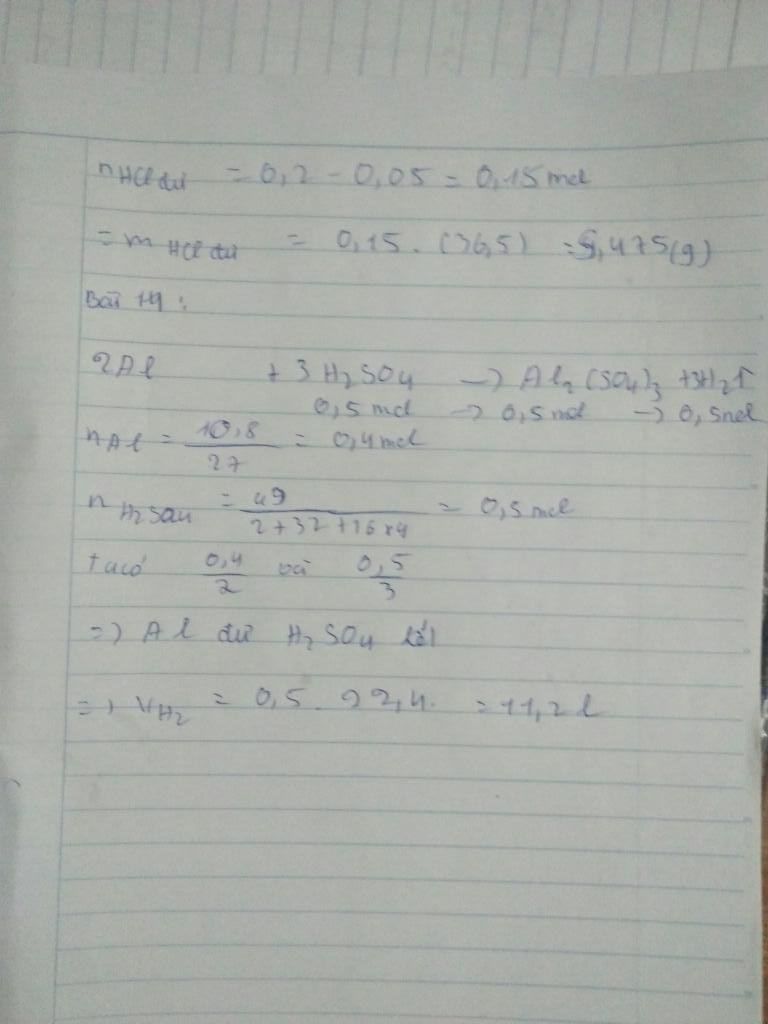 nHCl dư = 0,2 - 0,05 = 0,15 mol
= mHCl dư = 0,15 . (36,5) = 5,475(g)
Bài 14 :
2Al + 3H2SO4 -> Al2(SO4)3 + 3H2↑
0,5 mol -> 0,5 mol -> 0,5 mol
nAl = 10,8/27 = 0,4 mol
nH2SO4 = 49/2+32+16x4 = 0,5 mol
ta có 0,4/2 và 0,5/3
=> Al dư H2SO4 hết
=> VH2 = 0,5 . 22,4. = 11,2 l